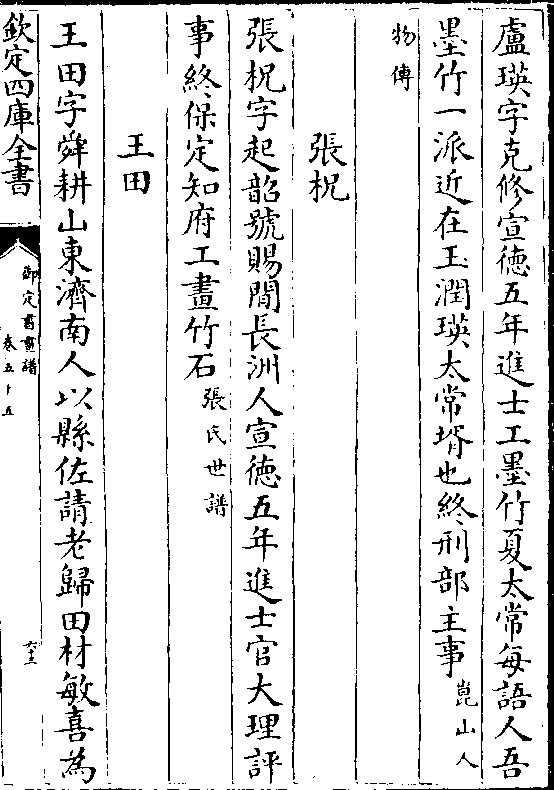 盧瑛字克修宣徳五年進士工墨竹夏太常每語人吾
墨竹一派近在玉潤瑛太常壻也終刑部主事崑山人
物傳
張柷
張柷字起韶號賜間長洲人宣徳五年進士官大理評
事終保定知府工畫竹石張氏世譜
王田
王田字舜耕山東濟南人以縣佐請老歸田材敏喜為
欽定四庫全書
御定書畫譜
卷五十五